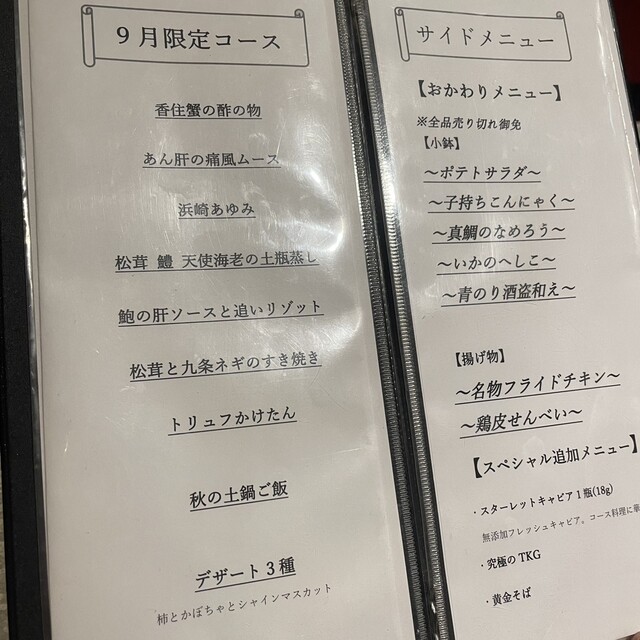 9月限定コース
香住蟹の酢の物
あん肝の痛風ムース
浜崎あゆみ
松茸 鱧 天使海老の土瓶蒸し
鮑の肝ソースと追いリゾット
松茸と九条ネギのすき焼き
トリュフかけたん
秋の土鍋ご飯
デザート3種
柿とかぼちゃとシャインマスカット
サイドメニュー
【おかわりメニュー】
※全品売り切れ御免
【小鉢】
～ポテトサラダ～
～子持ちこんにゃく～
～真鯛のなめろう～
～いかのへしこ～
～青のり酒盗和え～
【揚げ物】
～名物フライドチキン～
～鶏皮せんべい～
【スペシャル追加メニュー】
・スターレットキャビア1瓶(18g)
無添加フレッシュキャビア。コース料理に華
・究極のTKG
・黄金そば